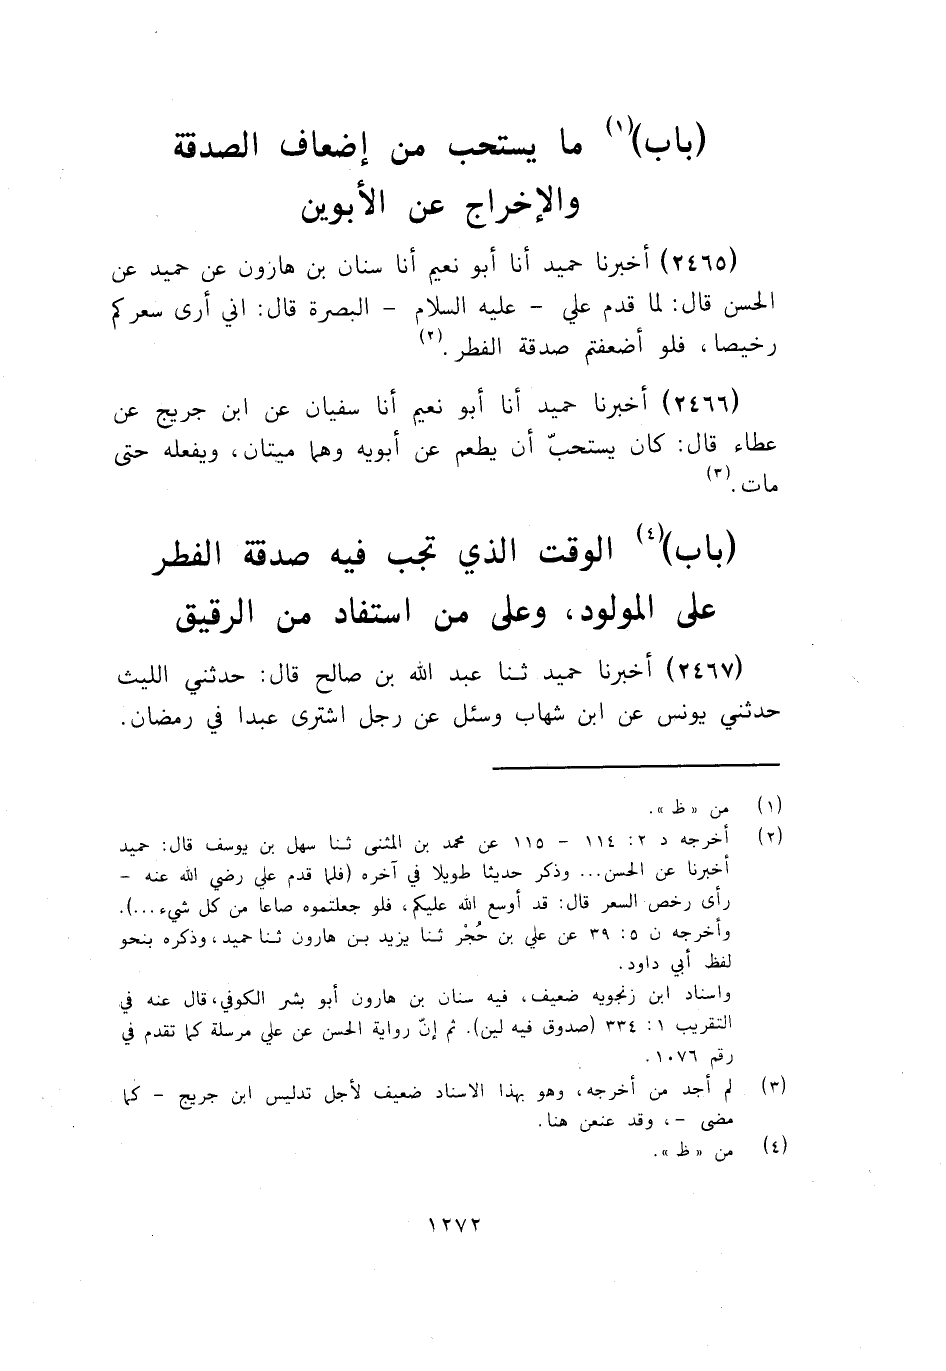 (باب)(١) ما يستحب من إضعاف الصدقة
والإخراج عن الأبوين
(٢٤٦٥) أخبرنا حميد أنا أبو نعيم أنا سنان بن هازون عن حميد عن
الحسن قال: لما قدم علي - عليه السلام - البصرة قال: اني أرى سعركم
رخيصا، فلو أضعفتم صدقة الفطر.(٢)
(٢٤٦٦) أخبرنا حميد أنا أبو نعيم أنا سفيان عن ابن جريج عن
عطاء قال: كان يستحبّ أن يطعم عن أبويه وهما ميتان، ويفعله حتى
مات.(٣)
(باب)(٤) الوقت الذي تجب فيه صدقة الفطر
على المولود، وعلى من استفاد من الرقيق
(٢٤٦٧) أخبرنا حميد ثنا عبد الله بن صالح قال: حدثني الليث
حدثني يونس عن ابن شهاب وسئل عن رجل اشترى عبدا في رمضان.
(١) من « ظ ».
(٢) أخرجه د ٢: ١١٤ - ١١٥ عن محمد بن المثنى ثنا سهل بن يوسف قال: حميد
أخبرنا عن الحسن... وذكر حديثا طويلا في آخره (فلما قدم علي رضي الله عنه -
رأى رخص السعر قال: قد أوسع الله عليكم، فلو جعلتموه صاعا من كل شيء...).
وأخرجه ن ٥: ٣٩ عن علي بن حُجْر ثنا يزيد بن هارون ثنا حميد، وذكره بنحو
لفظ أبي داود.
واسناد ابن زنجويه ضعيف، فيه سنان بن هارون أبو بشر الكوفي، قال عنه في
التقريب ١: ٣٣٤ (صدوق فيه لين). ثم إنّ رواية الحسن عن علي مرسلة كما تقدم في
رقم ١٠٧٦.
(٣) لم أجد من أخرجه، وهو بهذا الاسناد ضعيف لأجل تدليس ابن جريج - كما
مضى -، وقد عنعن هنا.
(٤) من « ظ ».
١٢٧٢